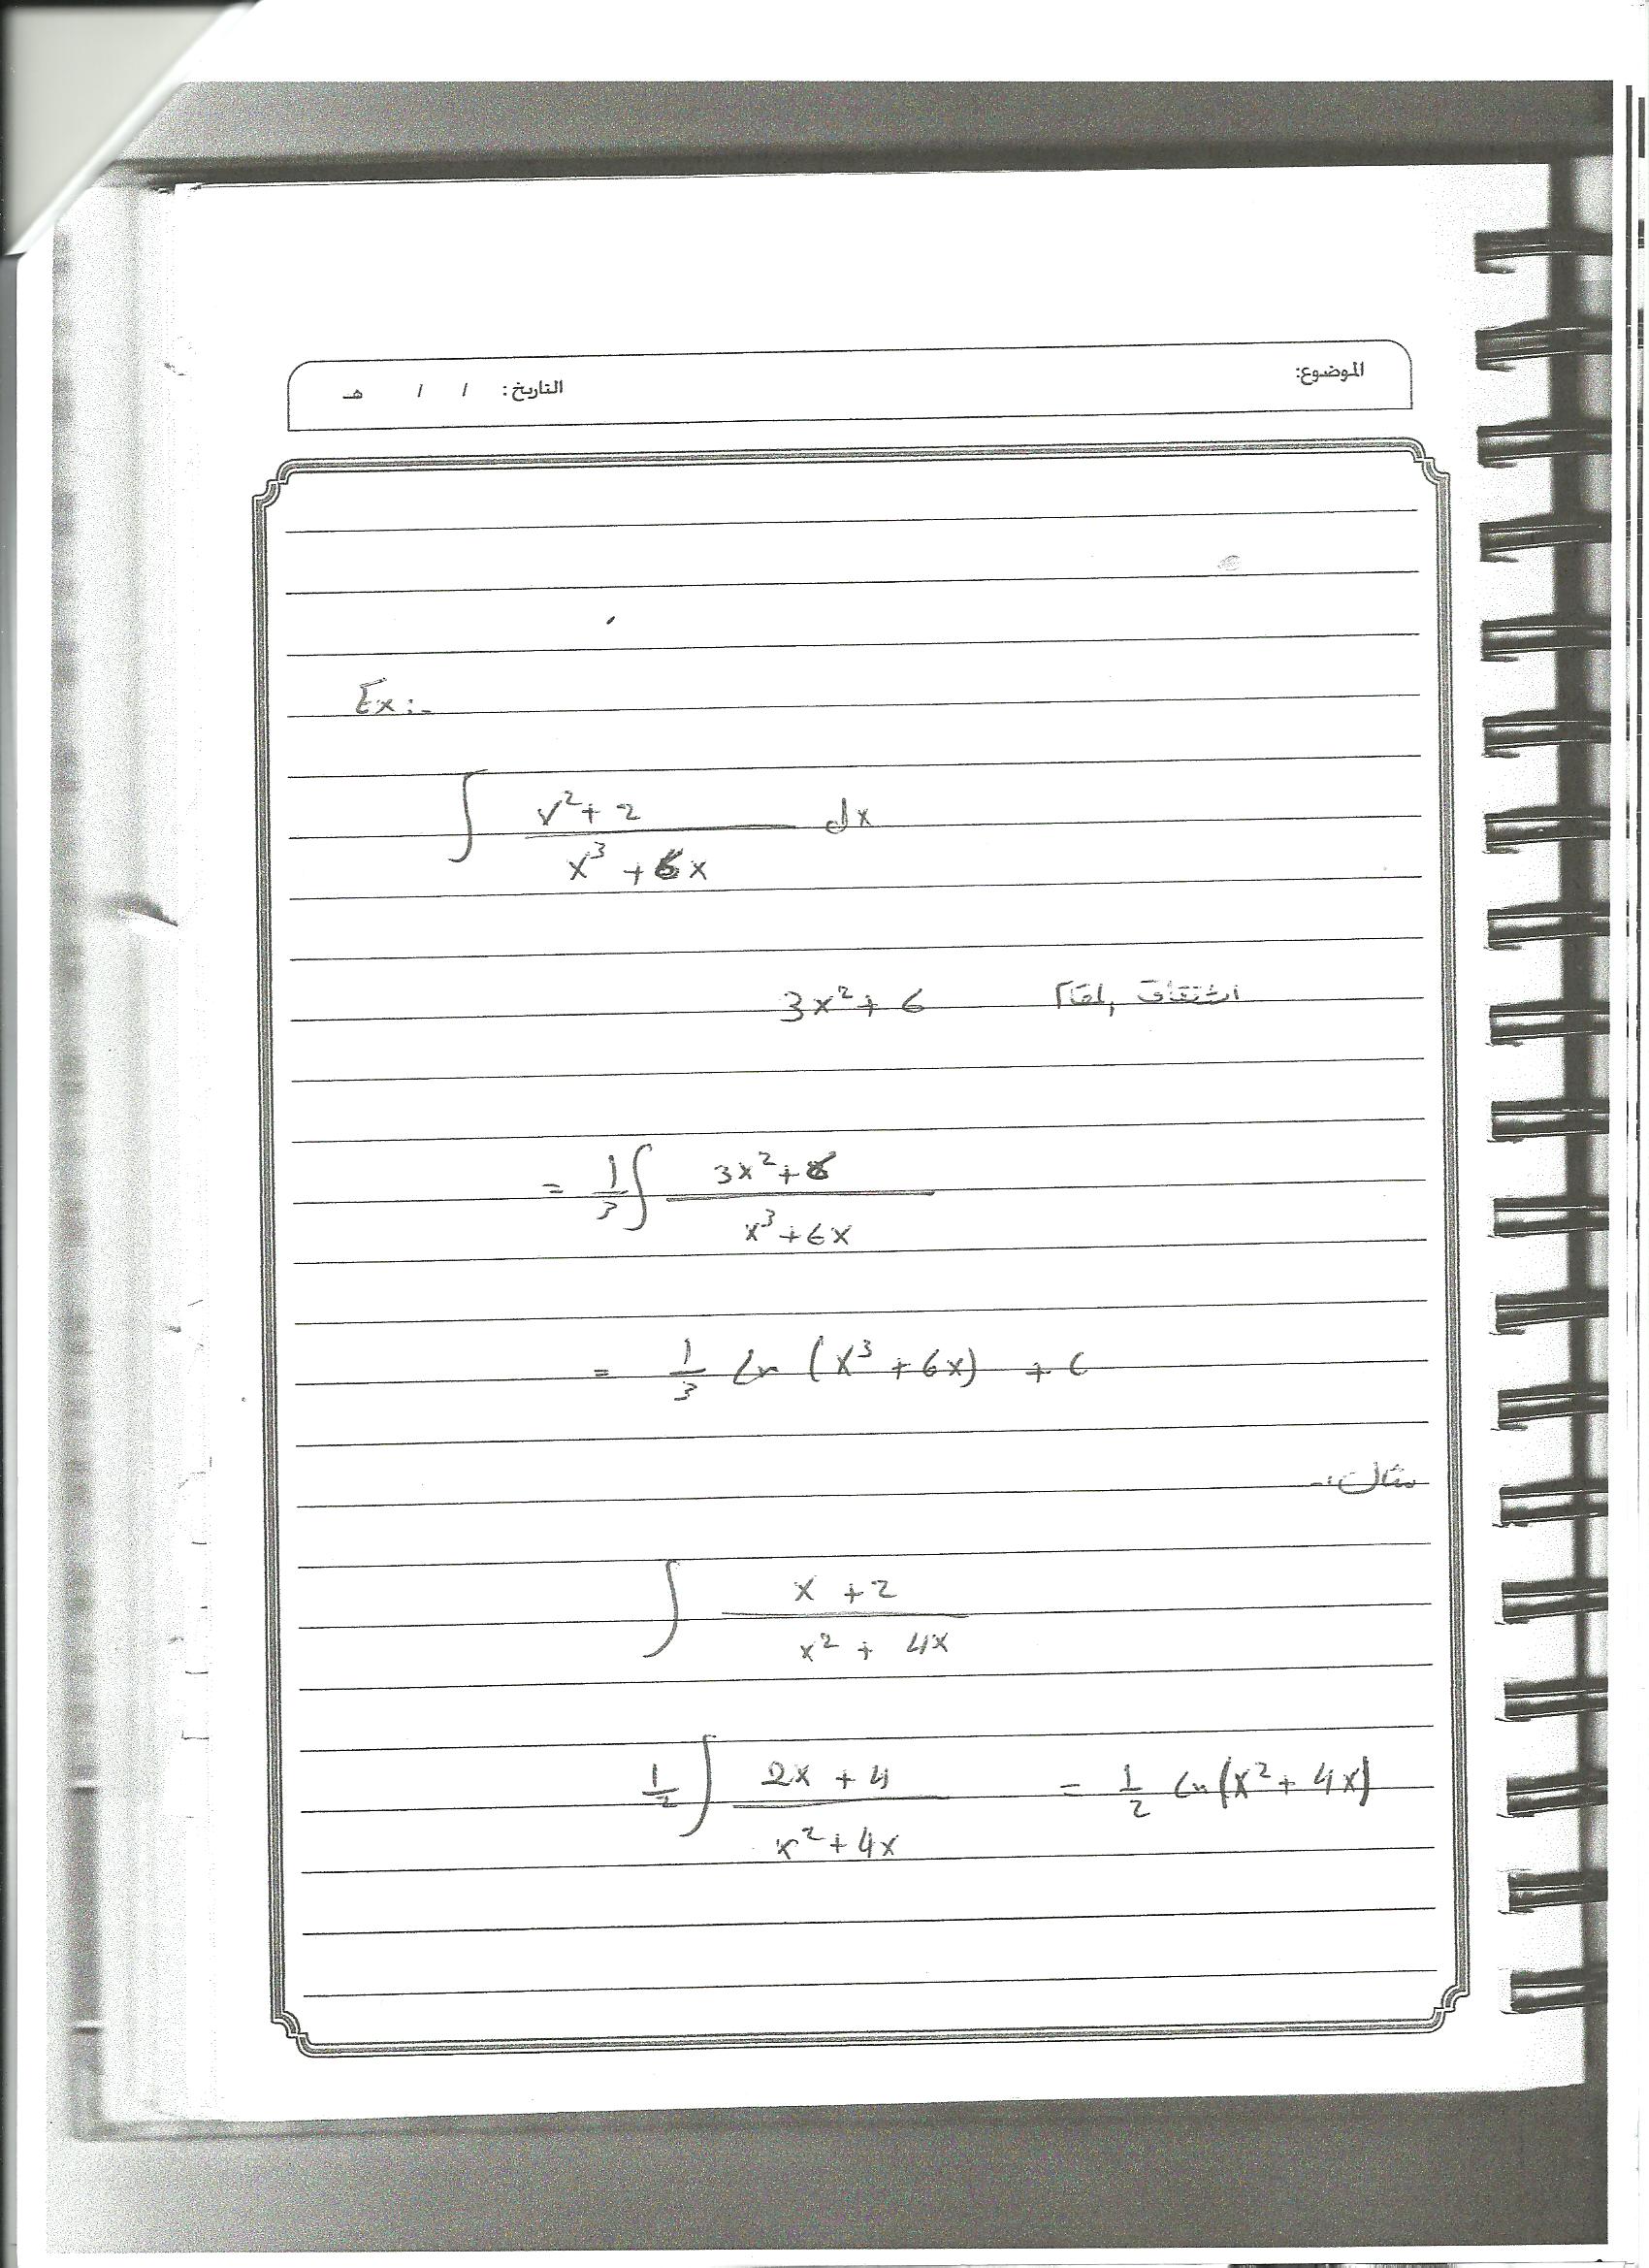 الموضوع: التاريخ: / / هـ
Ex:-
∫ (x²+2)/(x³+6x) dx
اشتقاق المقام 3x²+6
= 1/3 ∫ (3x²+6)/(x³+6x)
= 1/3 Ln (x³+6x) + c
مثال:-
∫ (x+2)/(x²+4x)
1/2 ∫ (2x+4)/(x²+4x) = 1/2 Ln(x²+4x)